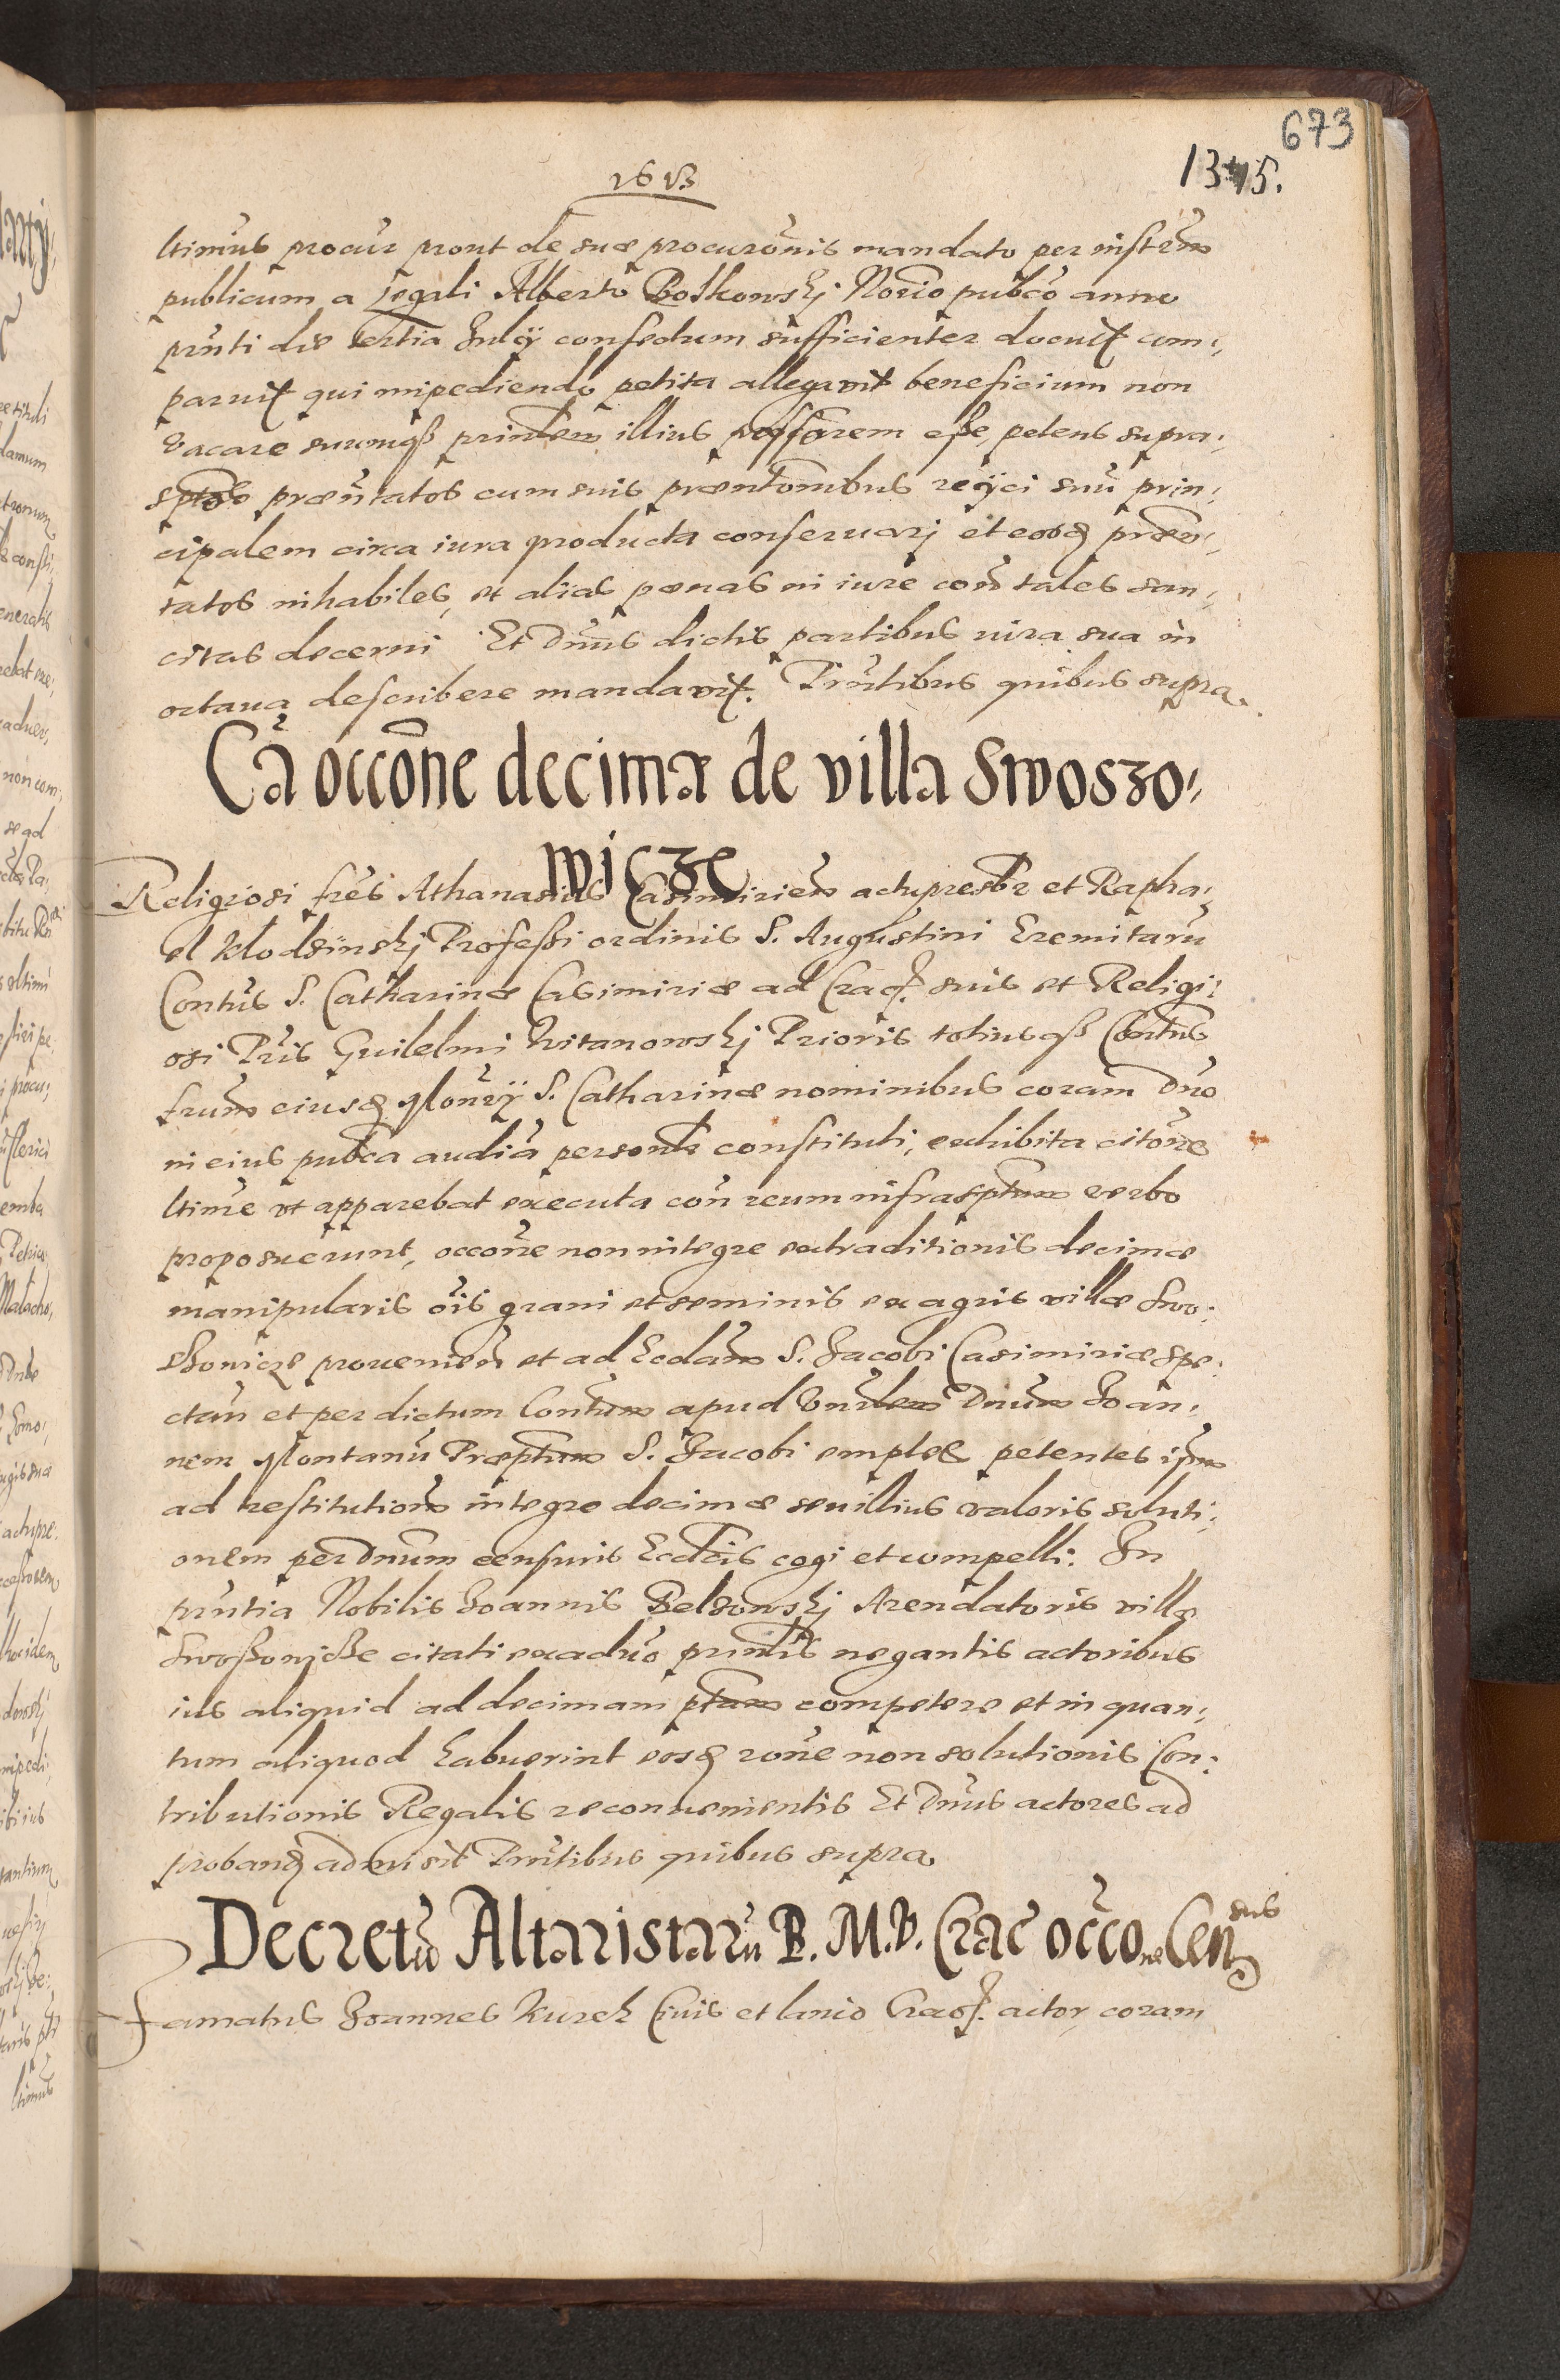 673
1345.
1613
ltimus procur prout de suæ procuronis mandato per instrum
publicum a legali Alberto Boskowskj Norio pubco anno
prnti die tertia Julij confectum sufficienter docuit com;
paruit qui impediendo petita allegavit beneficium non
vacare suumqß prinlem illius possorem eße, petens supra;
sptos præntatos cum suis præntombus reijci suu prin;
cipalem circa iura producta conseruarj et eosq præn;
tatos inhabiles, et alias pœnas in iure con tales san;
citas decerni. Et Dnus dictis partibus iura sua in
octaua describere mandavit. Prntibus quibus supra.
Ca occone decimæ de villa Swoszo;
wicze
Religiosi fres Athanasius Casimirien actupresbr et Rapha;
el Klodzinskj Profeßi ordinis S. Augustini Eremitaru
Contus S. Catharinæ Casimiriæ ad Crac. suis et Religi;
osi Pris Guilelmi Witanowskj Prioris totiusqß Contus
frum eiusq Monrij S. Catharinæ nominibus coram Dno
in eius pubca audia personlr constituti, exhibita citone
ltime vt apparebat executa con reum infrasptum verbo
proposuerunt, occone non integre extraditionis decimæ
manipularis ois grani et seminis ex agris villæ Swo;
szowicze prouenien et ad Ecclam S. Jacobi Casimiriæ spe;
ctan et per dictum Contum apud Vnrlem Dnum Joan;
nem Montanu Præptum S. Jacobi emptæ petentes ipm
ad restitution integre decimæ seu illius valoris soluti;
onem per dnum censuris Ecclcis cogi et compelli. In
prntia Nobilis Joannis Pelzowskj Arendatoris villæ
Swoßowicze citati ex aduo prinlis negantis actoribus
ius aliquid ad decimam ptam competere et in quan;
tum aliquod habuerint eosq rone non solutionis Con;
tributionis Regalis reconuenientis Et Dnus actores ad
proband admisit Prntibus quibus supra
Decretu Altaristaru B. M. V. Crac occone Censsus
Famatus Joannes Kurek Ciuis et lanio Crac. actor, coram